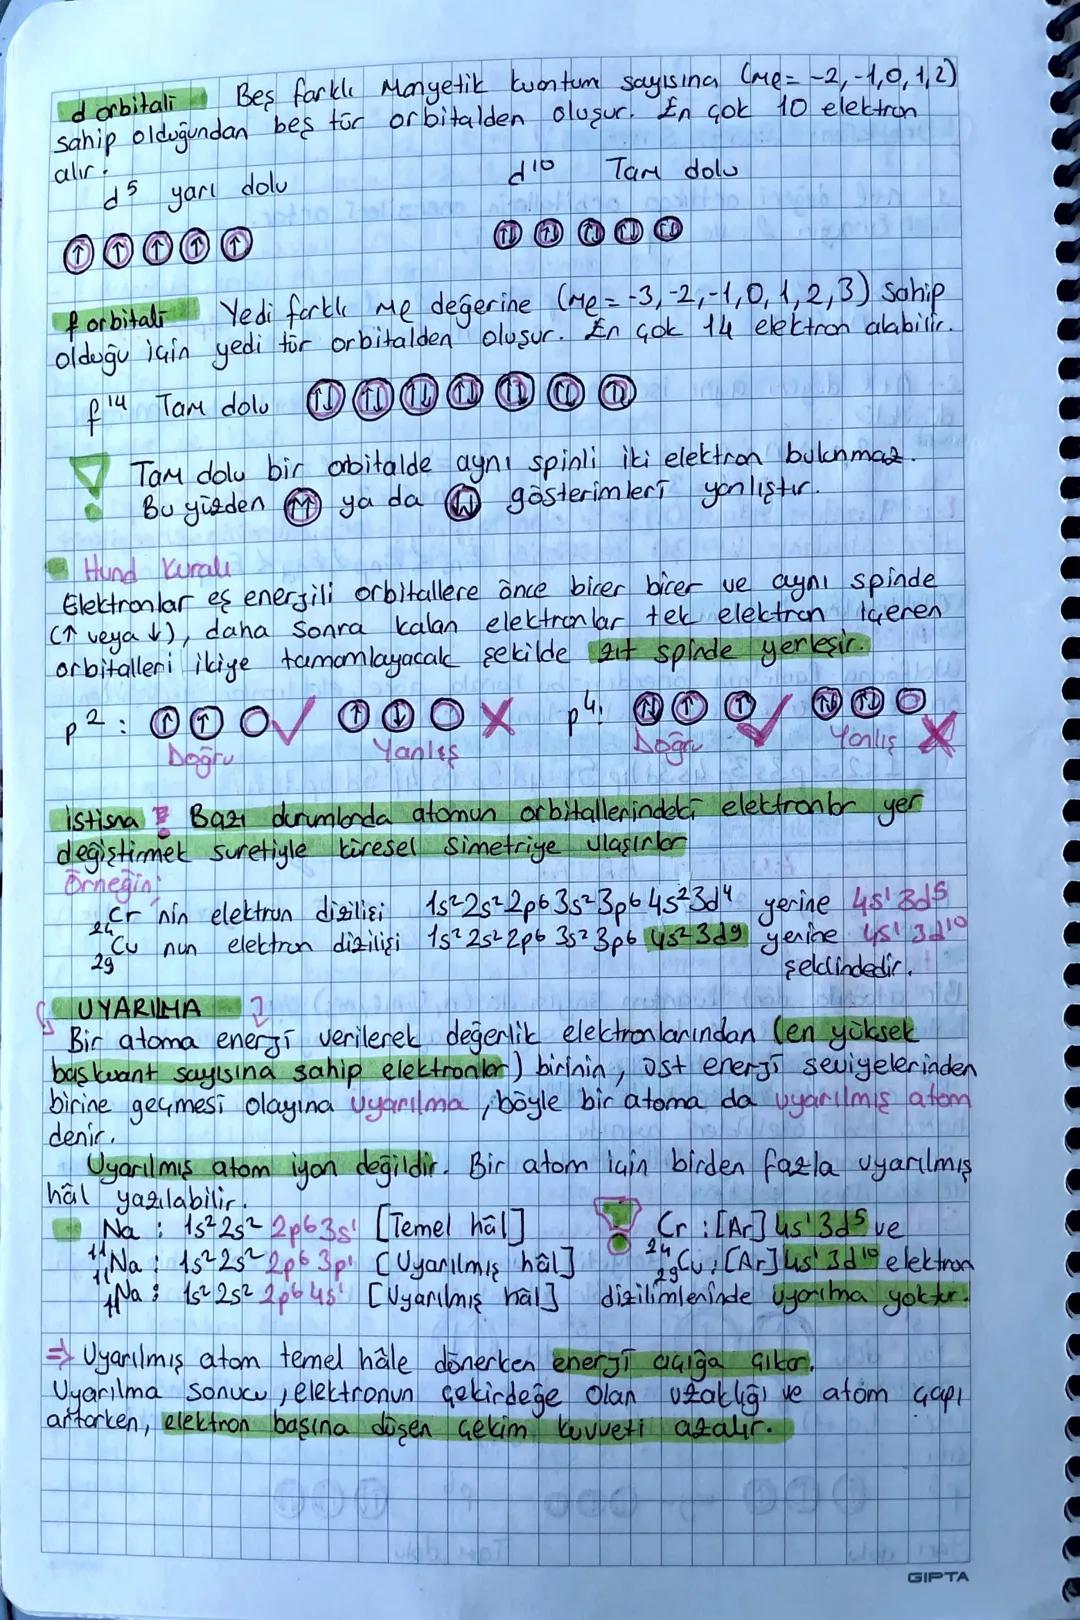 d orbitali Beş farklı Manyetik kuantum sayısına (mℓ= -2,-1,0,1,2)
sahip olduğundan beş tür orbitalden oluşur. En çok 10 elektron
alır.
d⁵ yarı dolu d¹⁰ Tam dolu
↑ ↑ ↑ ↑ ↑ ↑↓ ↑↓ ↑↓ ↑↓ ↑↓
f orbitali Yedi farklı mℓ değerine (mℓ= -3,-2,-1,0,1,2,3) sahip
olduğu için yedi tür orbitalden oluşur. En çok 14 elektron alabilir.
f¹⁴ Tam dolu ↑↓ ↑↓ ↑↓ ↑↓ ↑↓ ↑↓ ↑↓
! Tam dolu bir orbitalde aynı spinli iki elektron bulunmaz.
Bu yüzden ↑↑ ya da ↓↓ gösterimleri yanlıştır.
Hund Kuralı
Elektronlar eş enerjili orbitallere önce birer birer ve aynı spinde
(↑ veya ↓), daha sonra kalan elektronlar tek elektron içeren
orbitalleri ikiye tamamlayacak şekilde zıt spinde yerleşir.
p²: ↑ ↑ ○ ✓ ↑ ↓ ○ X p⁴: ↑↓ ↑ ↑ ✓ ↑↓ ↑↓ ○ X
Doğru Yanlış Doğru Yanlış
istisna ! Bazı durumlarda atomun orbitallerindeki elektronlar yer
değiştirmek suretiyle küresel simetriye ulaşırlar
Örneğin:
₂₄Cr 'nin elektron dizilişi 1s²2s²2p⁶3s²3p⁶4s²3d⁴ yerine 4s¹3d⁵
₂₉Cu nun elektron dizilişi 1s²2s²2p⁶3s²3p⁶4s²3d⁹ yerine 4s¹3d¹⁰
şeklindedir.
UYARILMA
Bir atoma enerji verilerek değerlik elektronlarından (en yüksek
baş kuant sayısına sahip elektronlar) birinin, üst enerji seviyelerinden
birine geçmesi olayına uyarılma, böyle bir atoma da uyarılmış atom
denir.
Uyarılmış atom iyon değildir. Bir atom için birden fazla uyarılmış
hâl yazılabilir.
₁₁Na : 1s²2s²2p⁶3s¹ [Temel hâl] ! ₂₄Cr : [Ar]4s¹3d⁵ ve
₁₁Na : 1s²2s²2p⁶3p¹ [Uyarılmış hâl] ₂₉Cu : [Ar]4s¹3d¹⁰ elektron
₁₁Na : 1s²2s²2p⁶4s¹ [Uyarılmış hâl] dizilimlerinde uyarılma yoktur.
⇒ Uyarılmış atom temel hâle dönerken enerji açığa çıkar.
Uyarılma sonucu, elektronun çekirdeğe olan uzaklığı ve atom çapı
artarken, elektron başına düşen çekim kuvveti azalır.
GIPTA